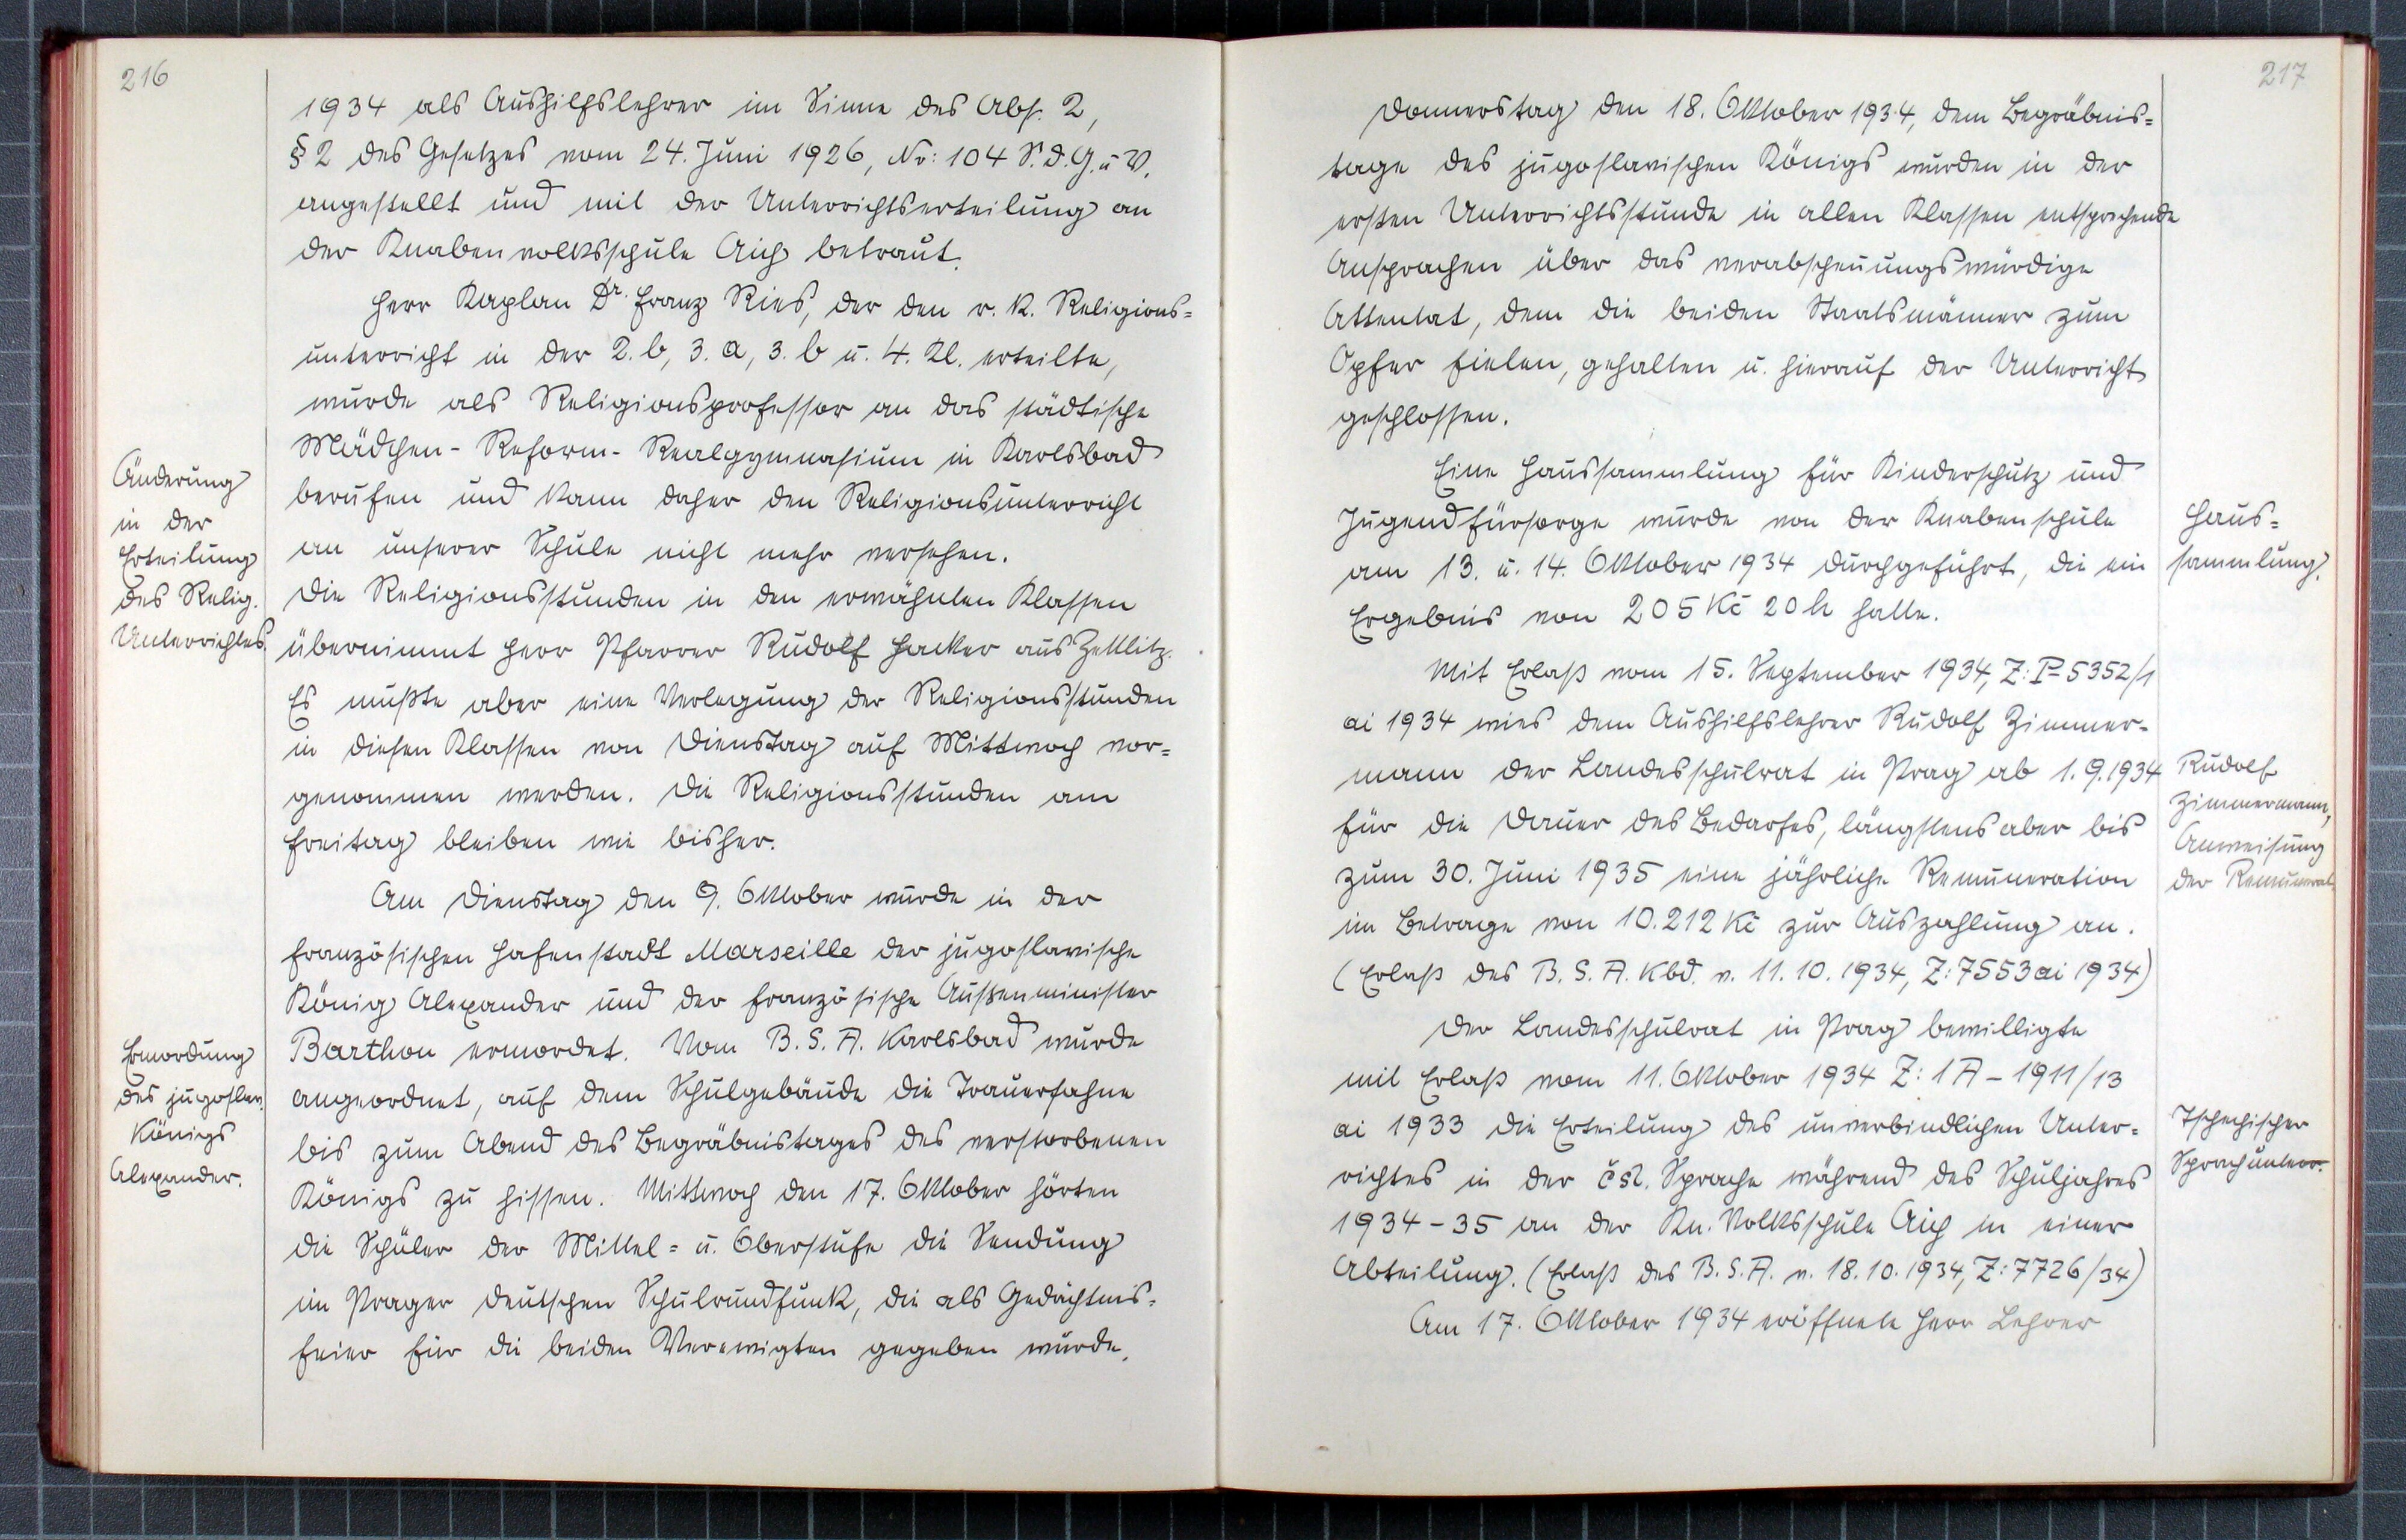 216
1934 als Aushilfslehrer im Sinne des Abs. 2,
§ 2 des Gesetzes vom 24. Juni 1926, Nr: 104 S. d. G. u V.
angestellt und mit der Unterrichtserteilung an
der Knabenvolksschule Aich betraut.
Herr Kaplan Dr. Franz Ries, der den r. k. Religions=
unterricht in der 2. b, 3. a, 3. b u. 4. Kl. erteilte,
wurde als Religionsprofessor an das städtische
Mädchen-Reform-Realgymnasium in Karlsbad
berufen und kann daher den Religionsunterricht
an unserer Schule nicht mehr versehen.
Die Religionsstunden in den erwähnten Klassen
übernimmt Herr Pfarrer Rudolf Hacker aus Zettlitz.
Es mußte aber eine Verlegung der Religionsstunden
in diesen Klassen von Dienstag auf Mittwoch vor=
genommen werden. Die Religionsstunden am
Freitag bleiben wie bisher.
Änderung
in der
Erteilung
des Relig.
Unterrichtes.
Am Dienstag den 9. Oktober wurde in der
französischen Hafenstadt Marseille der jugoslavische
König Alexander und der französische Außenminister
Barthou ermordet. Vom B. S. A. Karlsbad wurde
angeordnet, auf dem Schulgebäude die Trauerfahne
bis zum Abend des Begräbnistages des verstorbenen
Königs zu hissen. Mittwoch den 17. Oktober hörten
die Schüler der Mittel= u. Oberstufe die Sendung
im Prager deutschen Schulrundfunk, die als Gedächtnis=
feier für die beiden Verewigten gegeben wurde.
Ermordung
des jugoslav.
Königs
Alexander.
217
Donnerstag den 18. Oktober 1934, dem Begräbnis=
tage des jugoslavischen Königs wurden in der
ersten Unterrichtsstunde in allen Klassen entsprechende
Ansprachen über das verabscheuungswürdige
Attentat, dem die beiden Staatsmänner zum
Opfer fielen, gehalten u. hierauf der Unterricht
geschlossen.
Eine Haussammlung für Kinderschutz und
Jugendfürsorge wurde von der Knabenschule
am 13. u. 14. Oktober 1934 durchgeführt, die ein
Ergebnis von 205 Kč 20 h hatte.
Haus=
sammlung.
Mit Erlaß vom 15. September 1934, Z: I-5352/1
ai 1934 wies dem Aushilfslehrer Rudolf Zimmer-
mann der Landesschulrat in Prag ab 1. 9. 1934
für die Dauer des Bedarfes, längstens aber bis
zum 30. Juni 1935 eine jährliche Remuneration
im Betrage von 10.212 Kč zur Auszahlung an.
(Erlaß des B. S. A. Kbd. v. 11. 10. 1934, Z: 7553 ai 1934)
Rudolf
Zimmermann,
Anweisung
der Remunerat.
Der Landesschulrat in Prag bewilligte
mit Erlaß vom 11. Oktober 1934 Z: 1 A - 1911/13
ai 1933 die Erteilung des unverbindlichen Unter=
richtes in der čsl. Sprache während des Schuljahres
1934-35 an der Kn. Volksschule Aich in einer
Abteilung. (Erlaß des B. S. A. v. 18. 10. 1934, Z: 7726/34)
Tschechischer
Sprachunterr.
Am 17. Oktober 1934 eröffnete Herr Lehrer